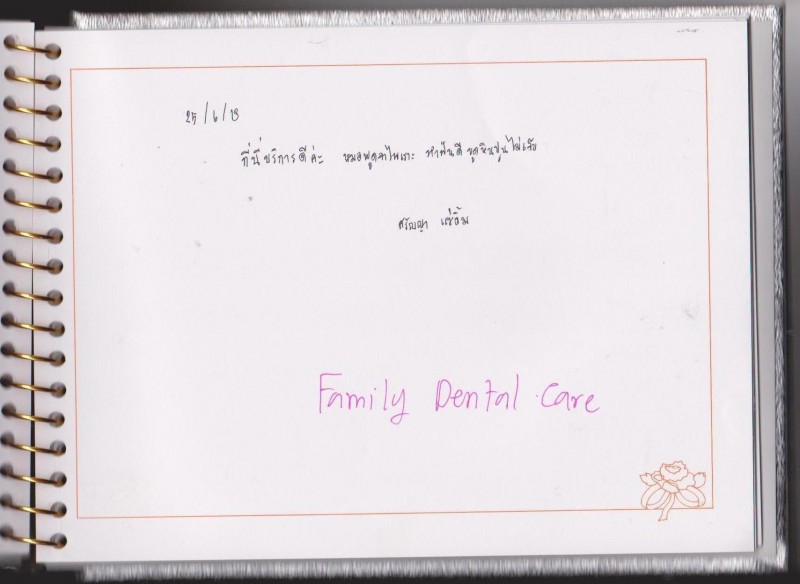 25/6/13
ที่นี่บริการดีค่ะ หมอพูดจาไพเราะ ทำฟันดี ขูดหินปูนไม่เจ็บ
ศรัญญา แซ่อึ้ง
Family Dental Care